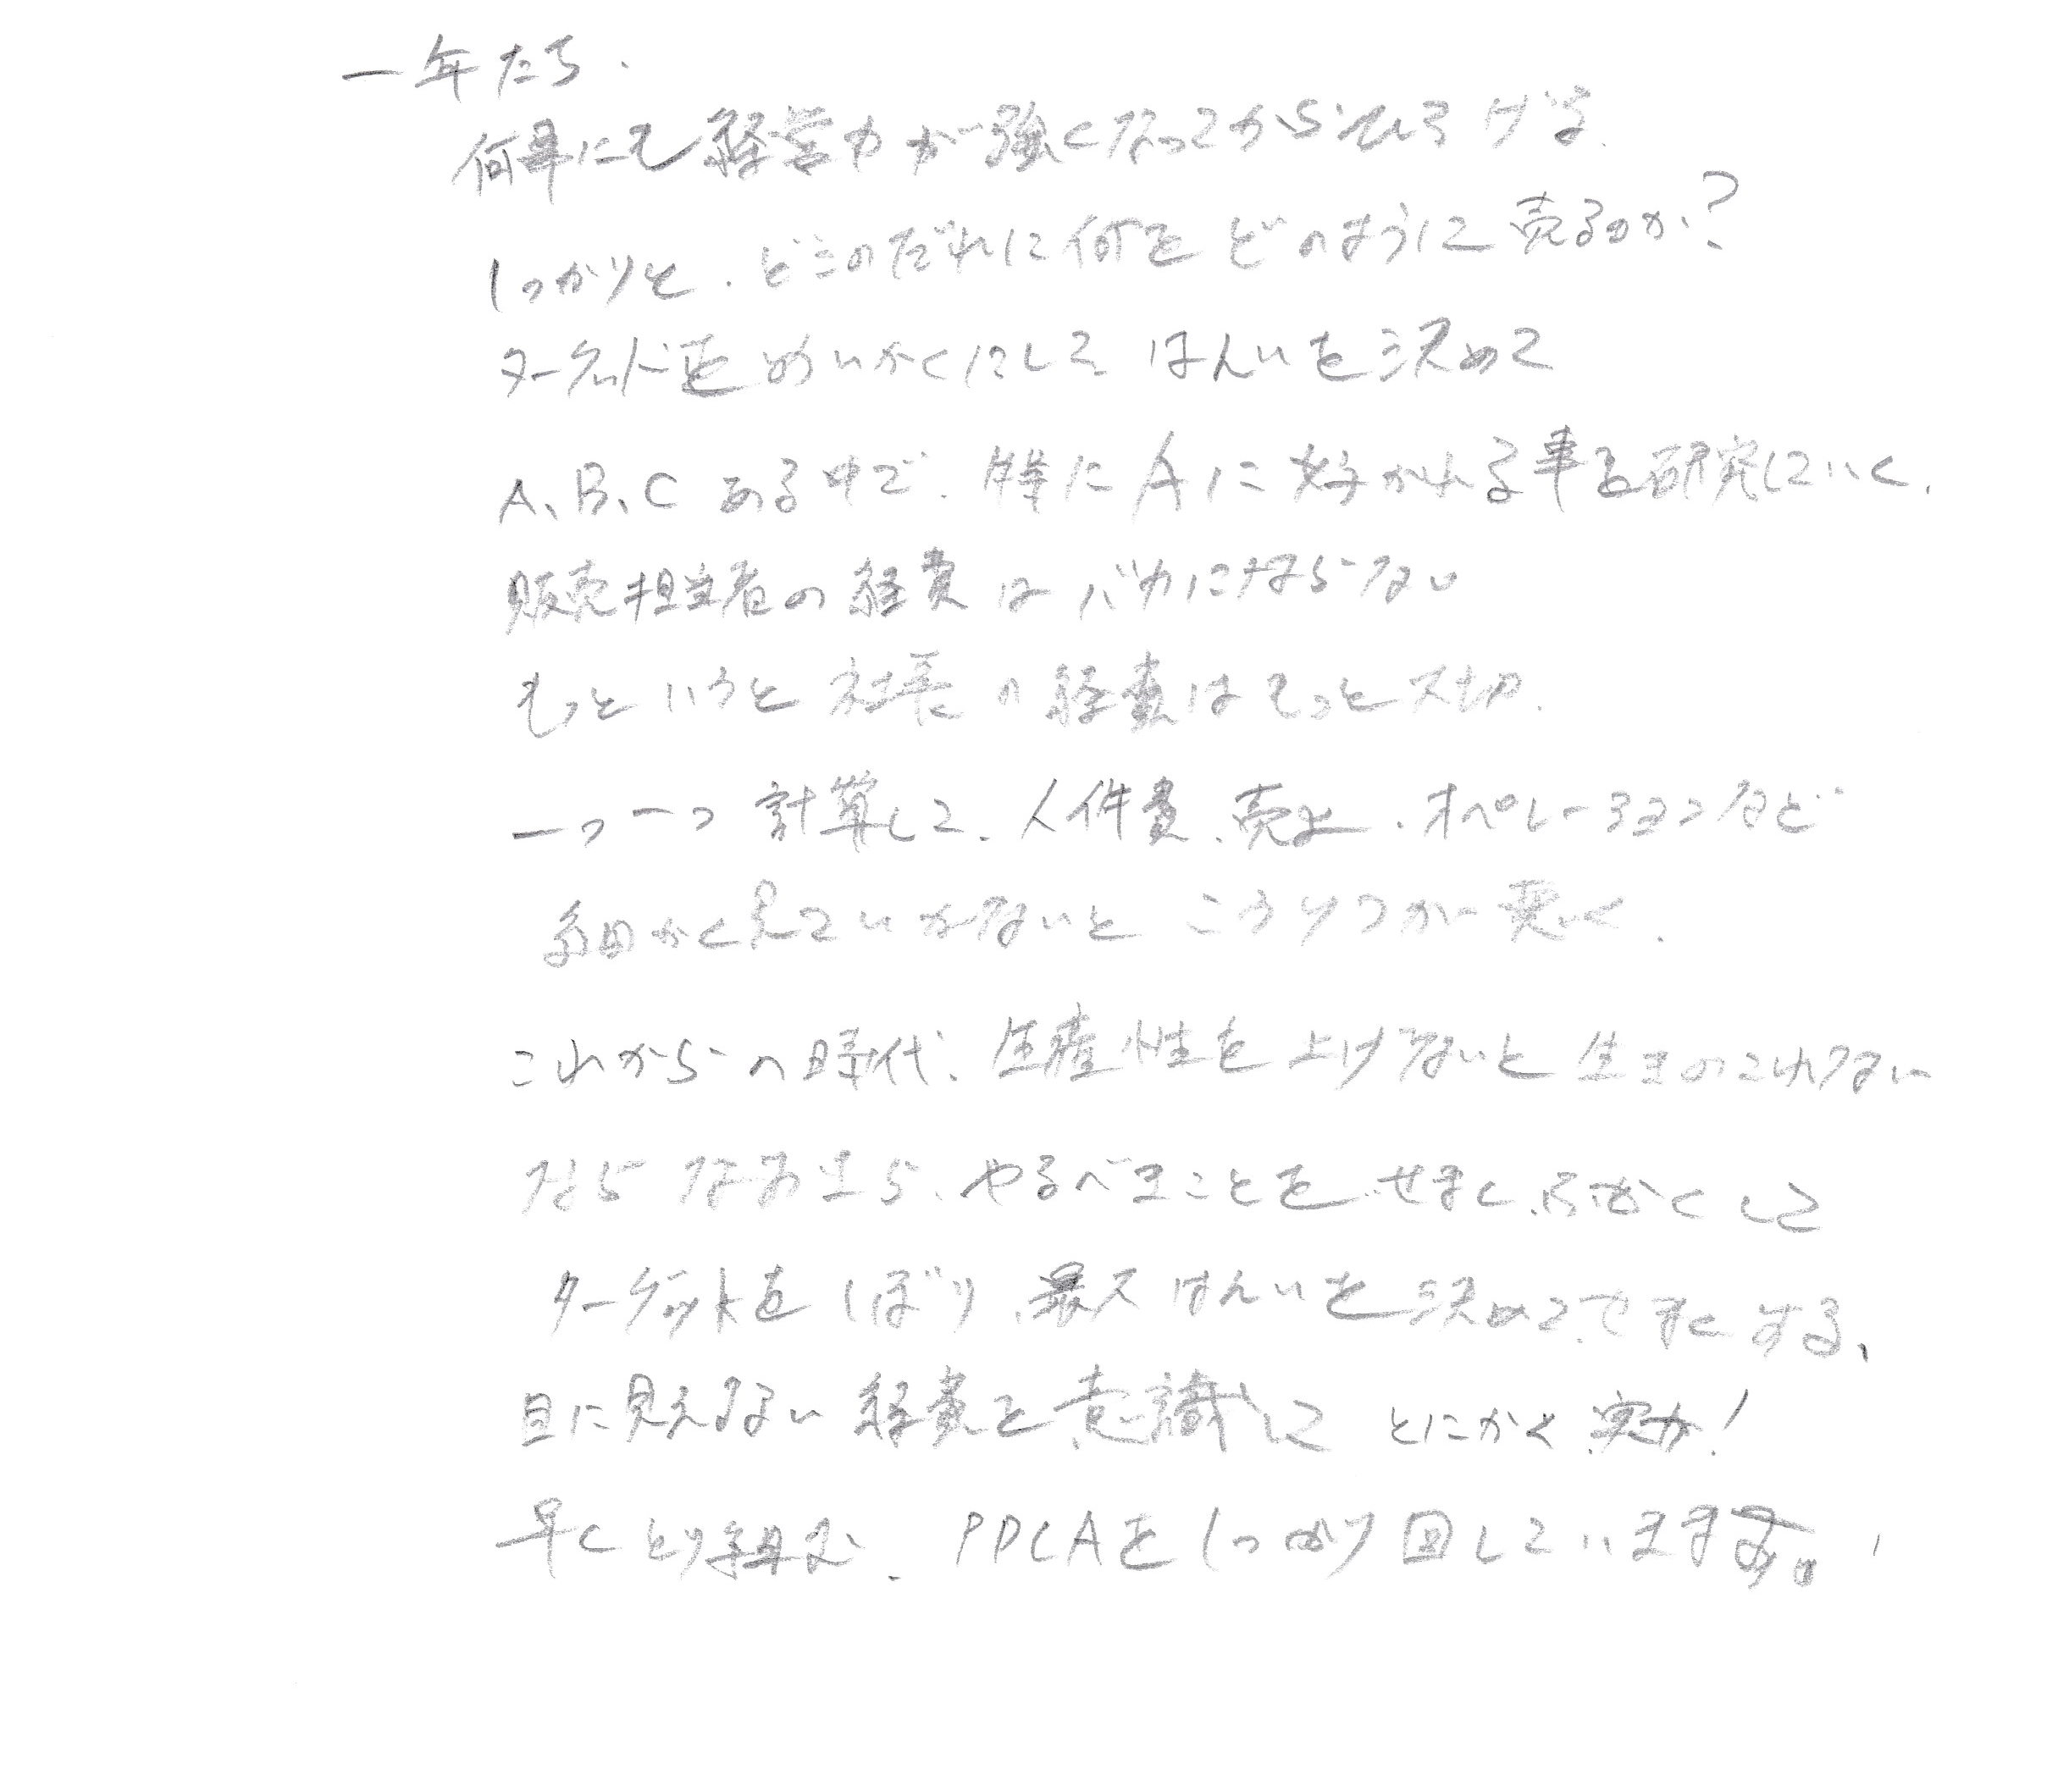 一年たち、
何事にも経営力が強くなってからひろげる.
しっかりと、どこのだれに何をどのように売るのか?
ターゲットをめいかくにして はんいを決めて
A、B、C ある中で、特にAに好かれる事を研究していく.
販売担当者の経費はバカにはならない
もっというと社長の経費はもっと大切.
一つ一つ計算して、人件費、売上、オペレーションなど
細かく見ていかないと こうりつが悪く.
これからの時代、生産性を上げないと生きのこれない
ならなおさら、やるべきことをせまく、ふかくして
ターゲットをしぼり、最大はんいを決めて、せまくする、
目に見えない経費を意識して とにかく実力!
早くとり組む、PDCAをしっかり回していきます。